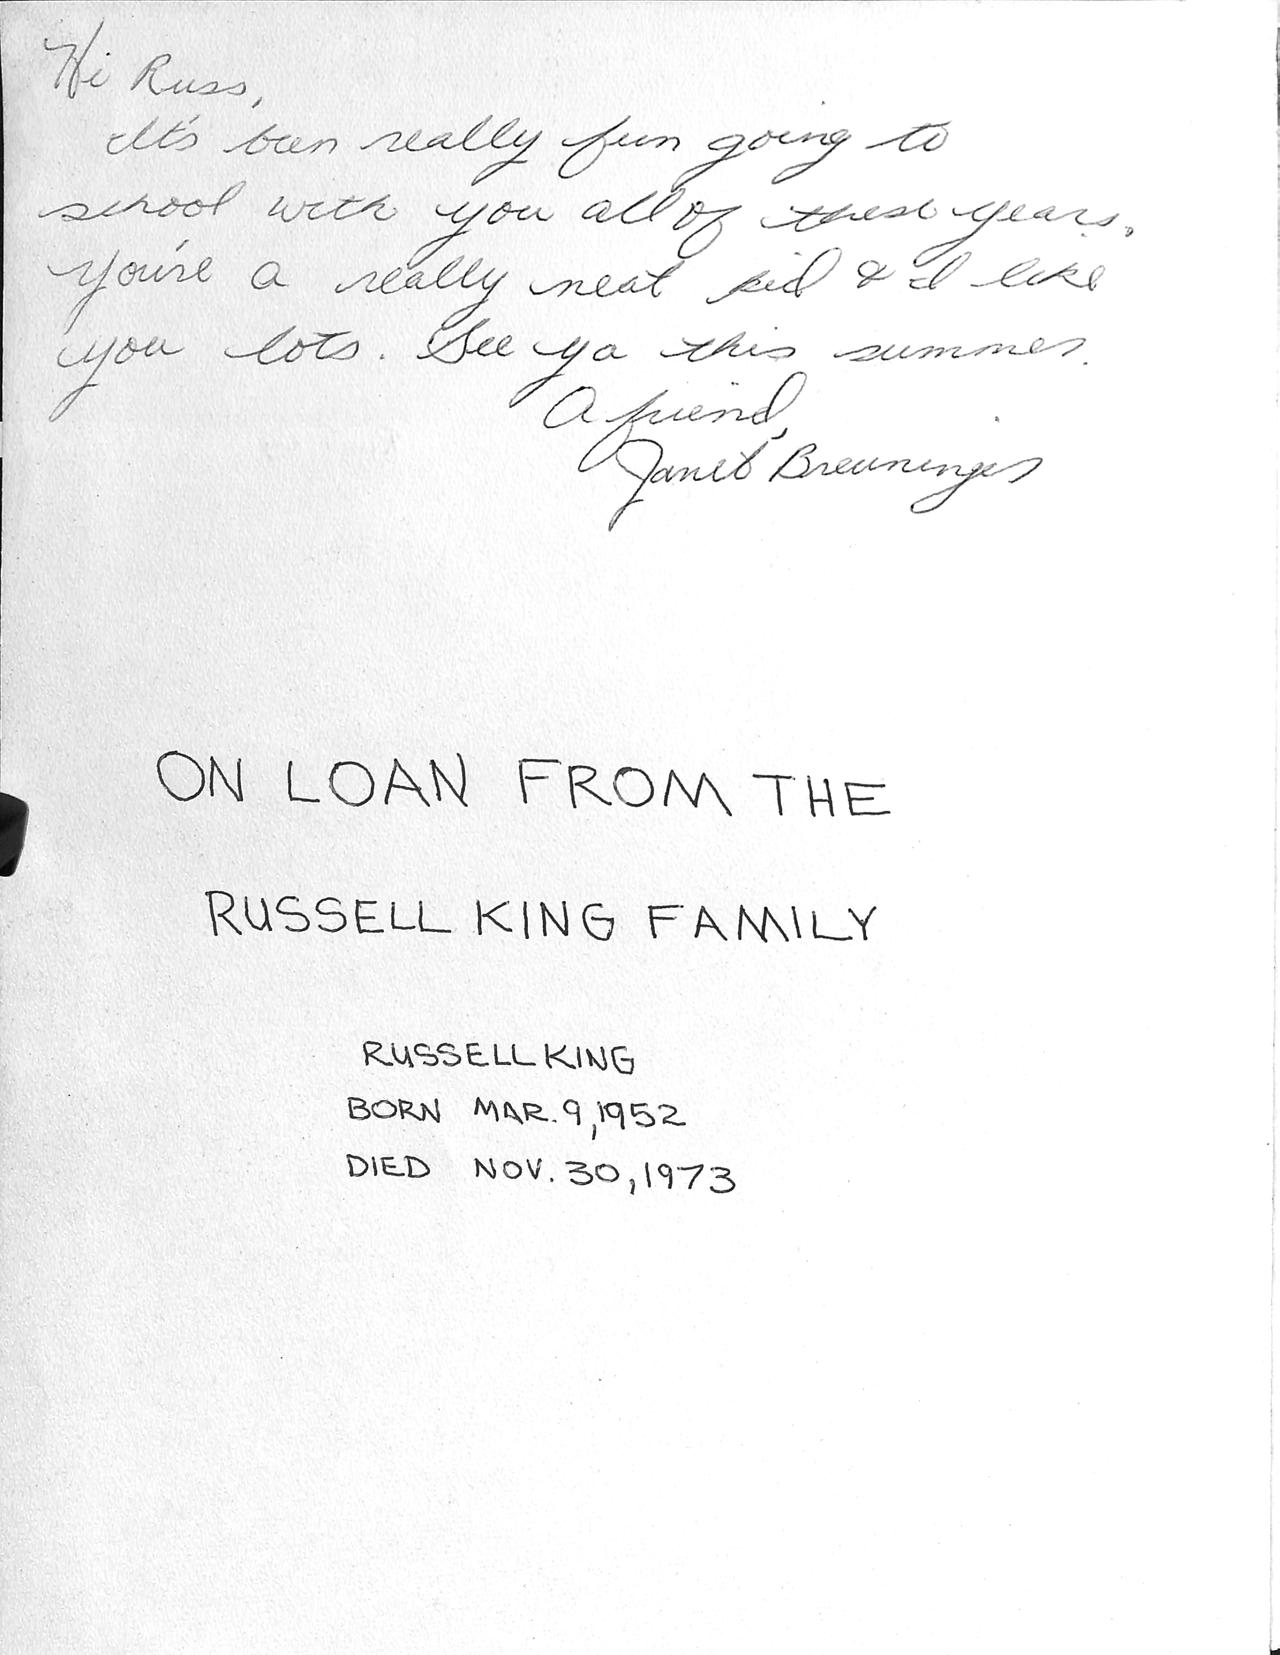 Hi Russ,
It's been really fun going to
school with you all of these years.
You're a really neat kid & I like
you lots. See ya this summer.
A friend,
Janet Breuninger
ON LOAN FROM THE
RUSSELL KING FAMILY
RUSSELL KING
BORN MAR. 9, 1952
DIED NOV. 30, 1973